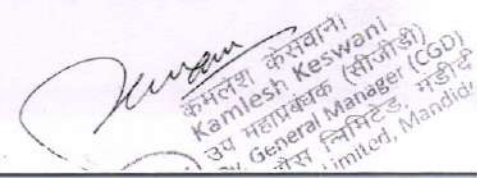 कमलेश केसवानी
Kamlesh Keswani
उप महाप्रबंधक (सीजीडी)
General Manager (CGD)
लिमिटेड,
Limited, Mandid